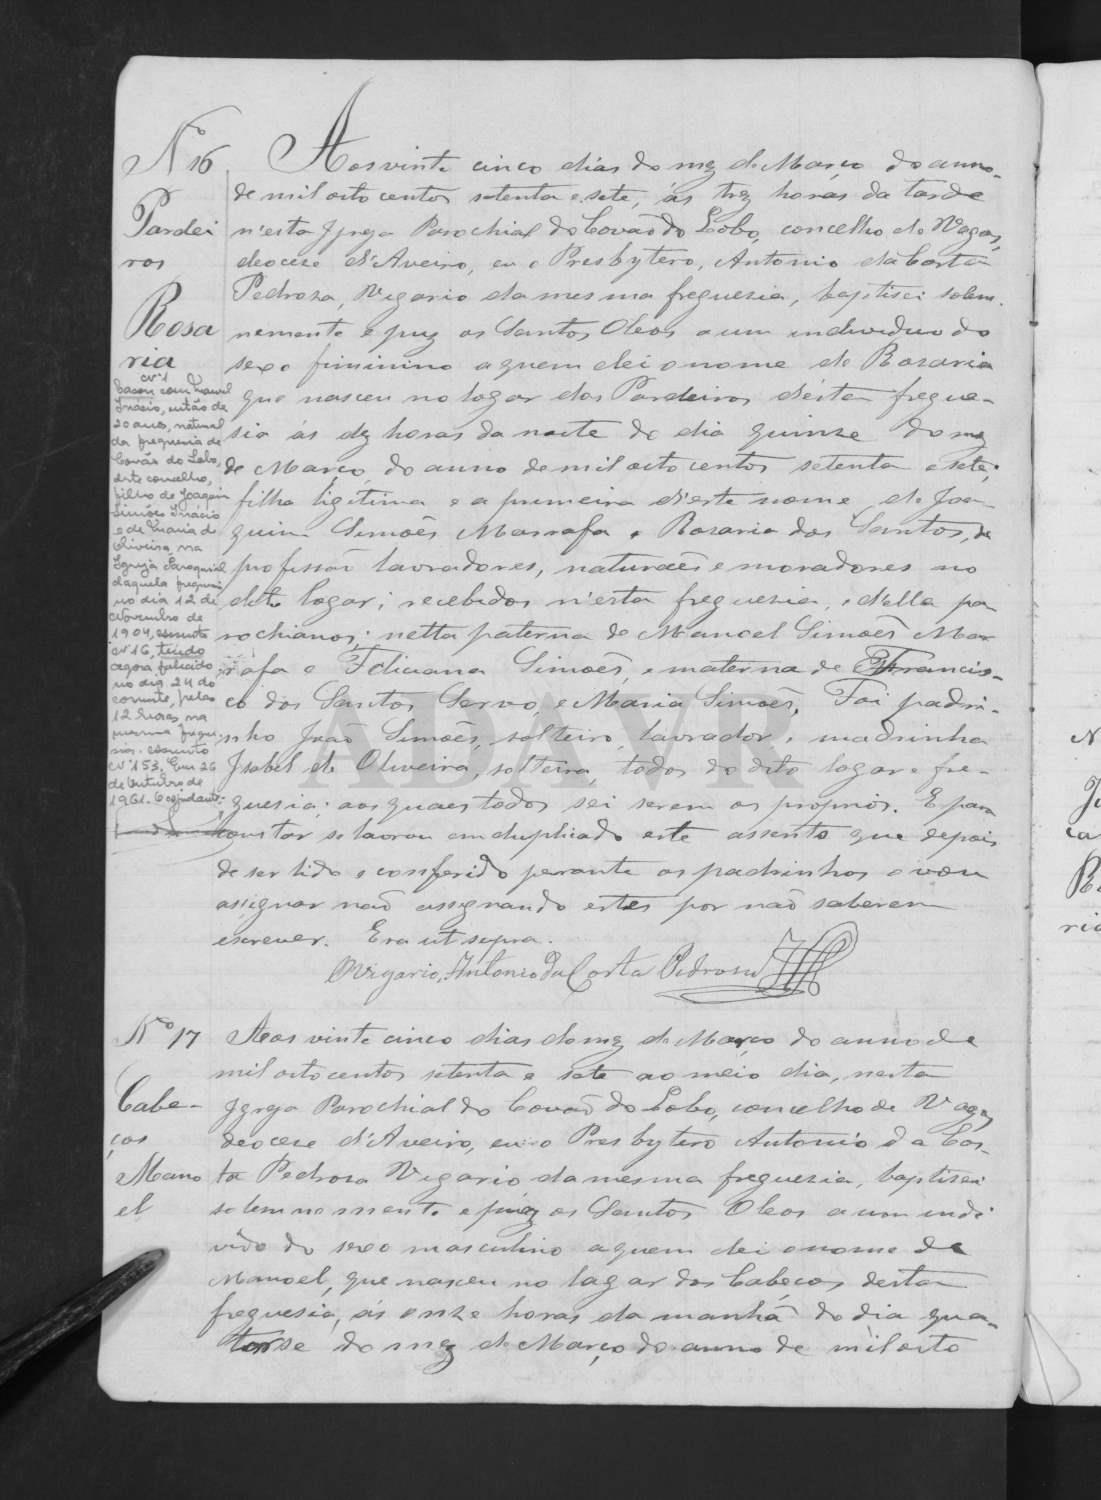 Nº 16
Pardei
ros
Rosa
ria
Nº 1
Casou com Manuel
Inácio, então de
20 anos, natural
da freguesia de
Covão do Lobo,
dste concelho,
filho de Joaquim
Simões Inácio
e de Maria d
Oliveira, na
Igreja Paroquial
daquela freguesi
no dia 12 de
Novembro de
1904, assento
Nº 16, tendo
agora falecido
no dia 24 do
corrente, pelas
12 horas, na
mesma fregue-
sia. assento
Nº 153. Em 26
de Outubro de
1961. O ajudante:
Aos vinte cinco dias do mez de Março do anno
de mil oito centos setenta e sete, ás trez horas da tarde
n'esta Igreja Parochial do Covão do Lobo, concelho de Vagos,
deocese d'Aveiro, eu o Presbytero, Antonio da Costa
Pedroza, Vigario da mesma freguezia, baptisei solem-
nemente e puz os Santos Oleos a um individuo do
sexo fiminino a quem dei o nome de Rozaria
que nasceu no logar dos Pardeiros d'ésta fregue-
sia ás dez horas da noite do dia quinze do mez
de Março do anno de mil oito centos setenta e sete;
filha ligitima e a primeira d'este nome de Joa-
quim Simoẽs Marrafa e Rozaria dos Santos, de
profissão lavradores, naturaẽs e moradores no
dito logar; recebidos n'esta freguezia, e d'ella pa
rochianos; netta paterna de Manoel Simoẽs Mar
rafa e Feliciana Simoẽs, e materna de Francis-
co dos Santos Servo, e Maria Simoẽs. Foi padri-
nho João Simoẽs, solteiro, lavrador, e madrinha
Isabel de Oliveira, solteira, todos do dito logar e fre-
guesia; aos quaes todos sei serem os proprios. E para
constar se lavrou em duplicado este assento que depois
de ser lido e conferido perante os padrinhos o vou
assignar não assignando estes por não saberem
escrever. Era ut supra.
O Vigario, Antonio da Costa Pedroza
Nº 17
Cabe-
ços
Mano
el
Aos vinte cinco dias do mez de Março do anno de
mil oito centos setenta e sete ao meio dia, nesta
Igreja Parochial do Covão do Lobo, concelho de Vagos,
deocese d'Aveiro, eu o Presbytero Antonio da Cos-
ta Pedroza Vigario da mesma freguezia, baptisei
solemnemente e puz os Santos Oleos a um indi
viduo do sexo masculino a quem dei o nome de
Manoel, que nasceu no lagar dos Cabeços desta
freguesia, ás onze horas da manhã do dia qua-
torse do mez de Março do anno de mil oito
ADAVR